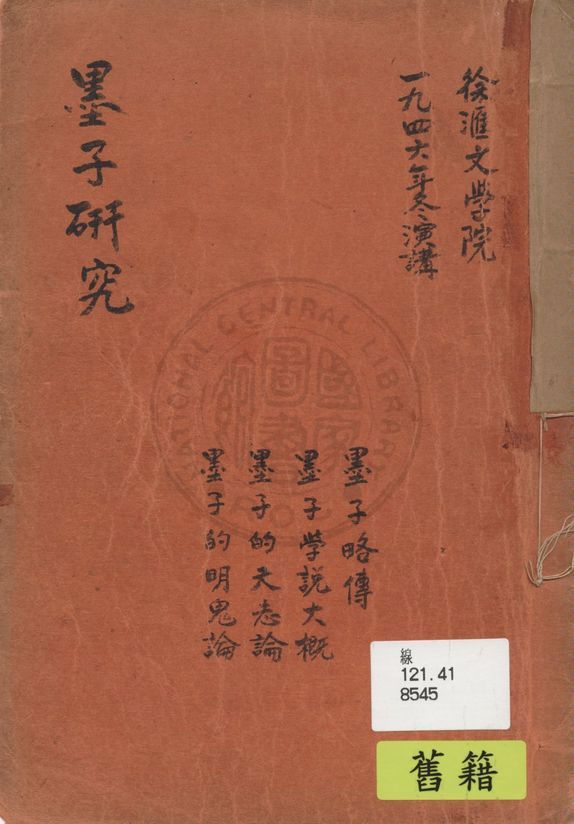 徐滙文學院
一九四六年冬演講
墨子研究
墨子略傳
墨子學說大概
墨子的天志論
墨子的明鬼論
NATIONAL CENTRAL LIBRARY
國家圖書館
線
121.41
8545
舊籍